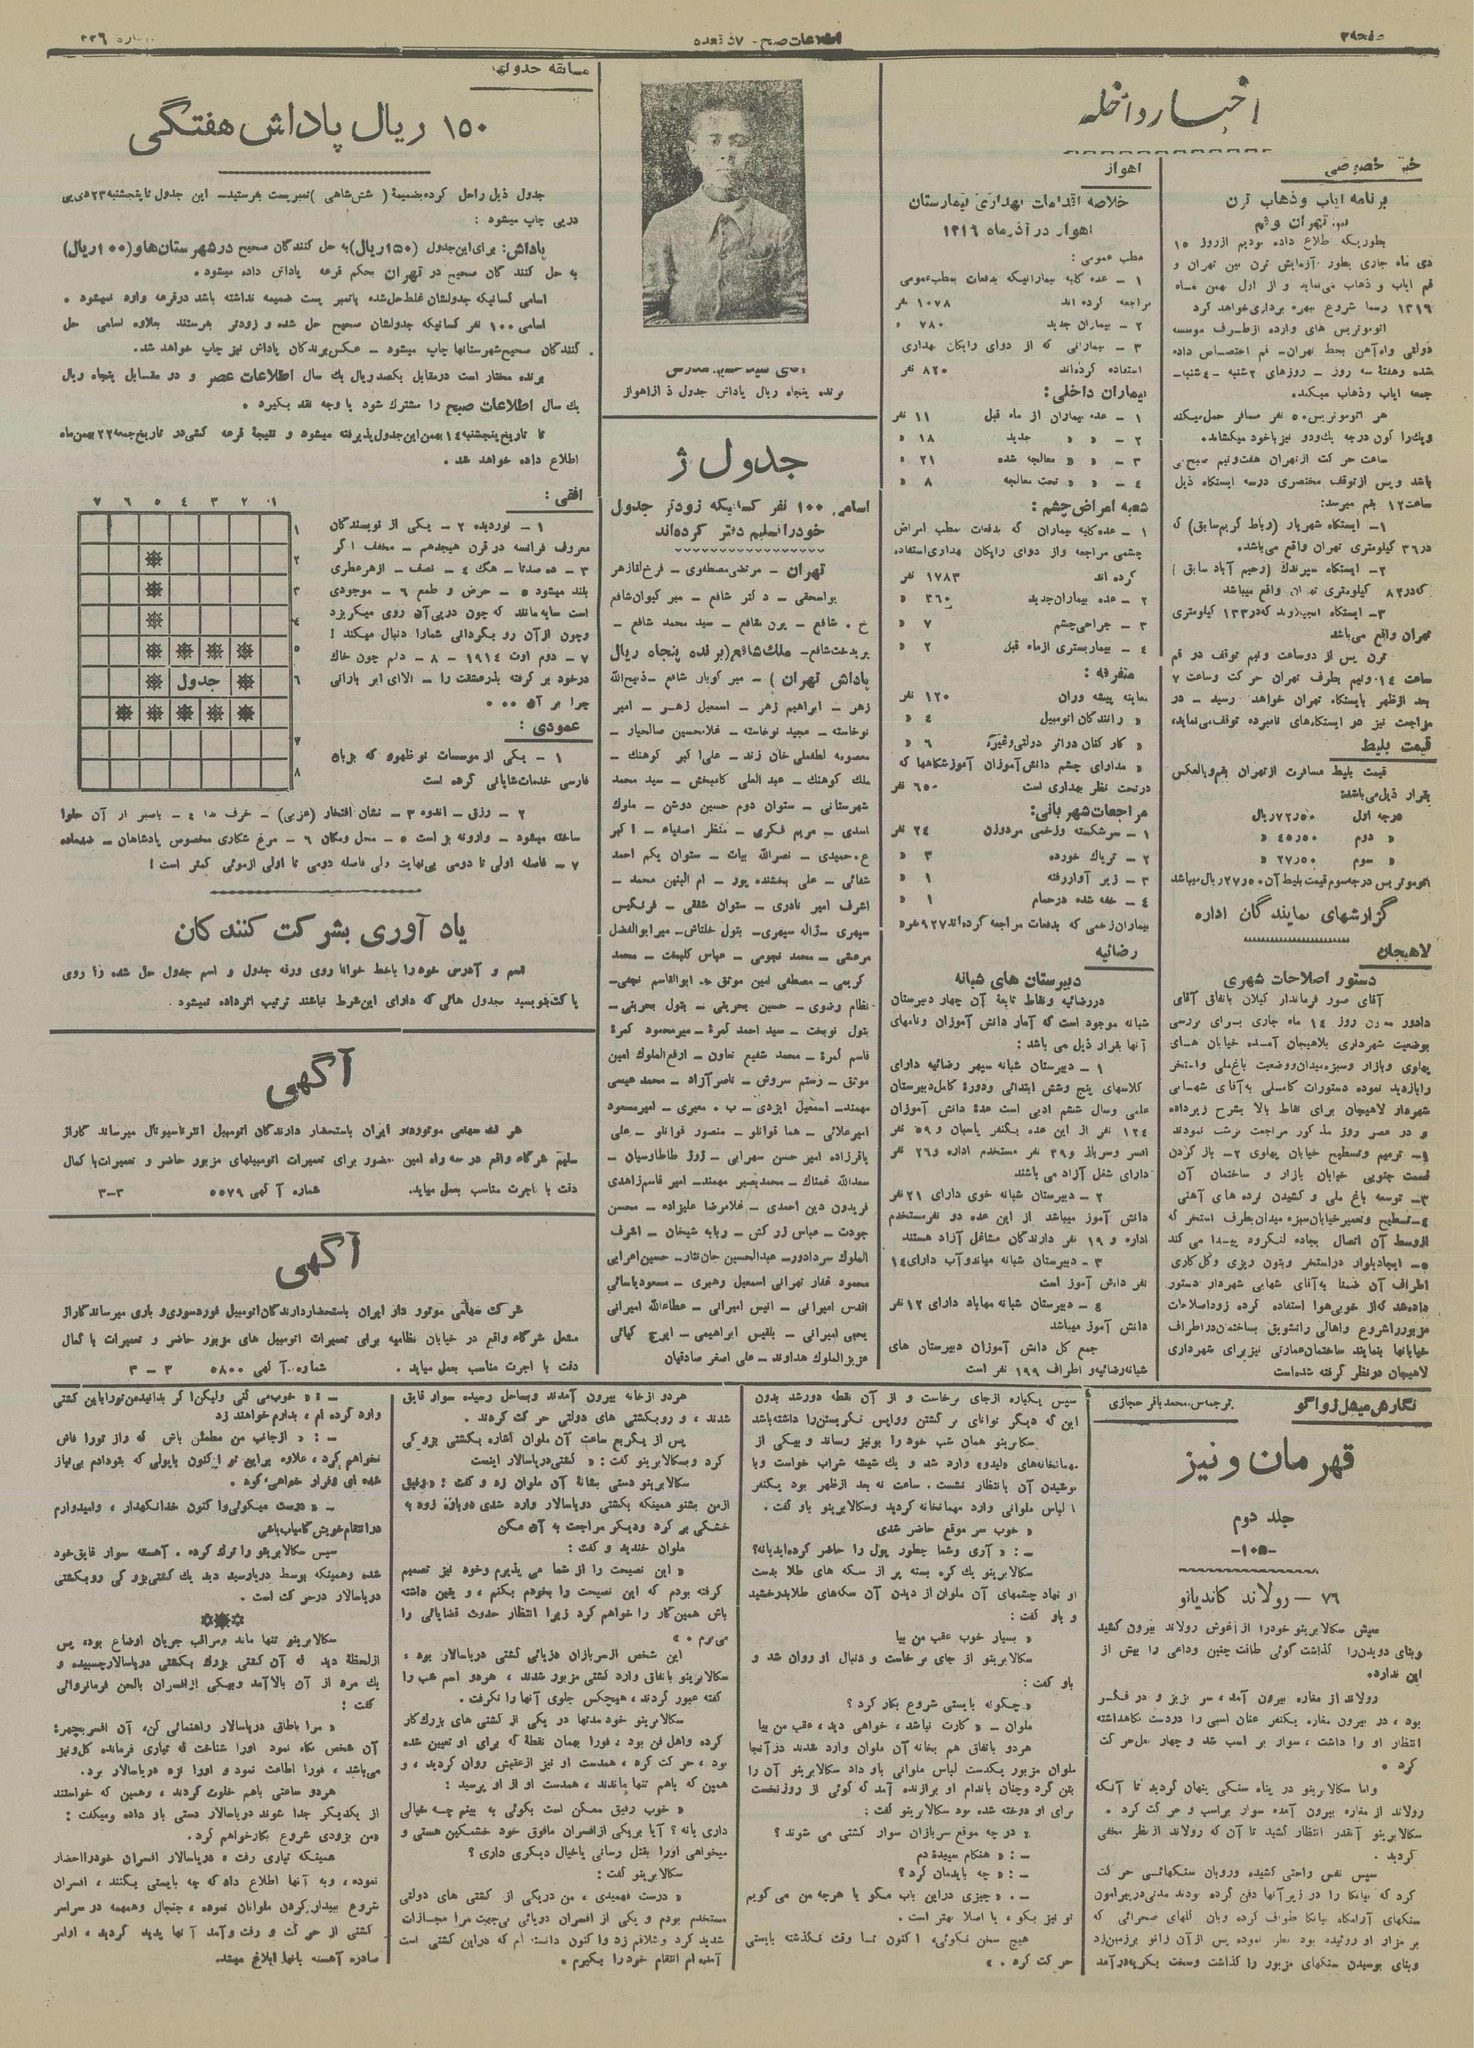 صفحه ۳
اطلاعات صبح - ۱۷ ذیقعده
شماره ۳۳۶
اخبار داخله
برنامه ایاب وذهاب ترن
بین تهران وقم
بطوریکه اطلاع داده بودیم از روز ۱۵
دی ماه جاری بطور آزمایش ترن بین تهران و
قم ایاب و ذهاب می‌نماید و از اول بهمن ماه
۱۳۱۹ رسما شروع ببهره برداری خواهد کرد
اتوموتریس های وارده از طرف موسسه
دولتی راه‌آهن بخط تهران- قم اختصاص داده
شده وهفتهٔ سه روز - روزهای ۲شنبه - ۴شنبه-
جمعه ایاب وذهاب میکند.
هر اتوموتریس ۵۰ نفر مسافر حمل میکند
ویک واگون درجه یک ودو نیز باخود میکشاند.
ساعت حرکت از تهران هفت ونیم صبح می
باشد وپس از توقف مختصری در سه ایستگاه ذیل
ساعت ۱۲ بقم میرسد:
۱- ایستگاه شهریار (رباط کریم سابق) که
در ۳۶ کیلومتری تهران واقع می‌باشد.
که در ۸۲ کیلومتری تهران واقع میباشد
تهران واقع می‌باشد
ترن پس از دوساعت ونیم توقف در قم
ساعت ۱۴ ونیم بطرف تهران حرکت وساعت ۷
بعد ازظهر بایستگاه تهران خواهد رسید - در
مراجعت نیز در ایستگاه‌های نامبرده توقف می‌نماید.
قیمت بلیط
قیمت بلیط مسافرت از تهران بقم وبالعکس
بقرار ذیل می‌باشد:
درجه اول ۷۲٫۵۰ ریال
« دوم ۴۵٫۵۰ «
« سوم ۲۷٫۵۰ «
اتوموتریس درجه سوم قیمت بلیط آن ۲۷٫۵۰ ریال میباشد
گزارشهای نمایندگان اداره
لاهیجان
دستور اصلاحات شهری
آقای صور فرماندار گیلان باتفاق آقای
دادور معاون روز ۱۴ ماه جاری برای بررسی
بوضعیت شهرداری بلاهیجان آمده خیابان های
پهلوی وبازار وسبزه میدان ووضعیت باغ ملی واستخر
را بازدید نموده دستورات کاملی به آقای شهابی
شهردار لاهیجان برای نقاط بالا بشرح زیر داده
و در عصر روز مذکور مراجعت برشت نمودند
۱- ترمیم وتسطیح خیابان پهلوی ۲- باز کردن
قسمت جنوبی خیابان بازار و ساختمان آن
۳- توسعه باغ ملی و کشیدن نرده های آهنی
۴- تسطیح وتعمیر خیابان سبزه میدان بطرف استخر که
ازوسط آن اتصال بجاده لنگرود پیدا می کند
۵- ایجاد بلوار در استخر وبتون ریزی وگل کاری
اطراف آن ضمنا به آقای شهابی شهردار دستور
داده شد که از خوبی هوا استفاده کرده زود اصلاحات
مزبور را شروع واهالی را تشویق بساختمان در اطراف
خیابانها بنمایند ساختمان عمارتی نیز برای شهرداری
لاهیجان در نظر گرفته شده است
اهواز
خلاصه اقدامات بهداری بیمارستان
اهواز در آذر ماه ۱۳۱۹
مطب عمومی :
۱ - عده کلیه بیمارانیکه بدفعات بمطب عمومی
مراجعه کرده اند ۱۰۷۸ نفر
۲ - بیماران جدید ۷۸۰ «
۳ - بیمارانی که از دوای رایگان بهداری
استفاده کرده‌اند ۸۲۰ نفر
بیماران داخلی :
۱ - عده بیماران از ماه قبل ۱۱ نفر
۲ - « « جدید ۱۸ «
۳ - « « معالجه شده ۲۱ «
۴ - « « تحت معالجه ۸ «
شعبه امراض چشم :
۱ - عده کلیه بیماران که بدفعات بمطب امراض
چشمی مراجعه واز دوای رایگان بهداری استفاده
کرده اند ۱۷۸۳ نفر
۲ - عده بیماران جدید ۳۶۰ «
۳ - جراحی چشم ۷ «
۴ - بیمار بستری از ماه قبل ۲ «
متفرقه :
معاینه پیشه وران ۱۲۰ نفر
« رانندگان اتومبیل ۴ «
« کارکنان دوائر دولتی وغیره ۶ «
« مداوای چشم دانش آموزان آموزشگاهها که
در تحت نظر بهداری است ۶۵۰ نفر
مراجعات شهربانی :
۱ - سرشکسته وزخمی مردوزن ۲۴ نفر
۲ - تریاک خورده ۳ «
۳ - زیر آوار رفته ۱ «
۴ - خفه شده در حمام ۱ «
بیماران زخمی که بدفعات مراجعه کرده‌اند ۹۲۷ نفر»
رضائیه
دبیرستان های شبانه
در رضائیه ونقاط تابعهٔ آن چهار دبیرستان
شبانه موجود است که آمار دانش آموزان ونامهای
آنها بقرار ذیل می باشد :
۱ - دبیرستان شبانه سپهر رضائیه دارای
کلاسهای پنج وشش ابتدائی ودورهٔ کامل دبیرستان
علمی وسال ششم ادبی است عدهٔ دانش آموزان
۱۲۴ نفر از این عده یکنفر پاسبان و ۵۹ نفر
افسر وسرباز و ۳۹ نفر مستخدم اداره و ۲۶ نفر
دارای شغل آزاد می باشند
۲ - دبیرستان شبانه خوی دارای ۲۱ نفر
دانش آموز میباشد از این عده دو نفر مستخدم
اداره و ۱۹ نفر دارندگان مشاغل آزاد هستند
۳ - دبیرستان شبانه میاندوآب دارای ۱۴
نفر دانش آموز است
۴ - دبیرستان شبانه مهاباد دارای ۱۲ نفر
دانش آموز میباشد
جمع کل دانش آموزان دبیرستان های
شبانه رضائیه و اطراف ۱۹۹ نفر است
برنده پنجاه ریال پاداش جدول ذ از اهواز
جدول ژ
اسامی ۱۰۰ نفر کسانیکه زودتر جدول
خود را تسلیم دفتر کرده‌اند
تهران - مرتضی مصطفوی - فرخ لقا زهر
بواسحقی - دکتر شافع - میر کیوان شافع
خ. شافع - پرن شافع - سید محمد شافع -
پریدخت شافع - ملک شافع (برنده پنجاه ریال
پاداش تهران) - میر کوبار شافع - ذبیح الله
زهر - ابراهیم زهر - اسمعیل زهر - امیر
نوخاسته - مجید نوخاسته - غلامحسین صالحیار -
معصومه لطفعلی خان زند - علی اکبر کوهنک -
ملک کوهنک - عبدالعلی کامبخش - سید محمد
شهرستانی - ستوان دوم حسین دوشن - ملوک
اسدی - مریم فکری - منظر اصفیاء - اکبر
ع. حمیدی - نصرالله بیات - ستوان یکم احمد
شفائی - علی بخشنده پور - ام البنین محمد -
اشرف امیر نادری - ستوان شفقی - فرنگیس
سپهری - ژاله سپهری - بتول خلتاش - میر ابوالفضل
مرعشی - محمد نجومی - عباس کلیمت - محمد
کریمی - مصطفی امین موثق - ه. ابوالقاسم نجفی -
نظام رضوی - حسین بحرینی - بتول بحرینی -
بتول نوبخت - سید احمد کمرهٔ - میر محمود کمرهٔ
قاسم کمرهٔ - محمد شفیع تعاون - ارفع الملوک امین
موثق - رستم سروش - ناصر آزاد - محمد عیسی
مهمند - اسمعیل ایزدی - ب. معیری - امیر مسعود
امیر علائی - هما قوانلو - منصور قوانلو - علی
باقرزاده امیر حسن سهرابی - ژوژ طاطاوسیان -
سعدالله غمناک - محمد بصیر مهمند - امیر قاسم زاهدی
فریدون دین احمدی - غلامرضا علیزاده - محسن
جودت - عباس زرکش - ربابه شیخان - اشرف
الملوک سردادور - عبدالحسین جان نثار - حسین اعرابی
محمود غفار تهرانی اسمعیل رهبری - مسعود یاسائی
اقدس امیرانی - انیس امیرانی - عطاءالله امیرانی
یحیی امیرانی - بلقیس ابراهیمی - ایرج کهائی
عزیز الملوک هداوند - علی اصغر صادقیان
مسابقه جدولها
۱۵۰ ریال پاداش هفتگی
جدول ذیل را حل کرده بضمیمهٔ (شش شاهی) تمبر پست بفرستید - این جدول تا پنجشنبه ۲۳ دی پی
در پی چاپ میشود :
پاداش: برای این جدول (۱۵۰ ریال) به حل کنندگان صحیح در شهرستان‌ها و (۱۰۰ ریال)
به حل کنندگان صحیح در تهران بحکم قرعه پاداش داده میشود.
اسامی کسانیکه جدولشان غلط حل شده یا تمبر پست ضمیمه نداشته باشد در قرعه وارد نمیشود.
اسامی ۱۰۰ نفر کسانیکه جدولشان صحیح حل شده و زودتر بفرستند بعلاوه اسامی حل
کنندگان صحیح شهرستانها چاپ میشود - عکس برندگان پاداش نیز چاپ خواهد شد.
برنده مختار است در مقابل یکصد ریال یک سال اطلاعات عصر و در مقابل پنجاه ریال
یک سال اطلاعات صبح را مشترک شود یا وجه نقد بگیرد.
تا تاریخ پنجشنبه ۱۴ بهمن این جدول پذیرفته میشود و نتیجهٔ قرعه کشی در تاریخ جمعه ۲۲ بهمن ماه
اطلاع داده خواهد شد.
افقی :
۱ - نوردیده ۲ - یکی از نویسندگان
معروف فرانسه در قرن هیجدهم - مخفف اگر
۳ - ده صدتا - هک ۴ - نصف - ازهر عطری
بلند میشود ۵ - حرص و طمع ۶ - موجودی
است سایه مانند که چون در پی آن روی میگریزد
وچون از آن رو بگردانی شما را دنبال میکند!
۷ - دوم اوت ۱۹۱۴ - ۸ - دلم چون خاک
در خود بر گرفته بذر عشقت را - الا ای ابر بارانی
چرا بر آن ...
عمودی :
۱ - یکی از موسسات نوظهوری که بزبان
فارسی خدمات شایانی کرده است
۲ - رزق - اندوه ۳ - نشان افتخار (عربی) - حرف ندا ۴ - باصبر از آن حلوا
ساخته میشود - وارونه بر است ۵ - محل ومکان ۶ - مرغ شکاری مخصوص پادشاهان - ضد ماده
۷ - فاصله اولی تا دومی بی‌نهایت ولی فاصله دومی تا اولی از موئی کمتر است!
۱ ۲ ۳ ۴ ۵ ۶ ۷
۱
۲
۳
۴
۵
۶
۷
۸
جدول
یادآوری بشرکت کنندگان
اسم و آدرس خود را باخط خوانا روی ورقه جدول و اسم جدول حل شده را روی
پاکت بنویسید جدول هائی که دارای این شرط نباشند ترتیب اثر داده نمیشود.
آگهی
شرکت سهامی موتورد در ایران باستحضار دارندگان اتومبیل انترناسیونال میرساند گاراژ
سلیم شرکاء واقع در سه راه امین حضور برای تعمیرات اتومبیلهای مزبور حاضر و تعمیرات با کمال
دقت با اجرت مناسب بعمل میاید. شماره آگهی ۵۵۷۹ ۳-۳
آگهی
شرکت سهامی موتور دار ایران باستحضار دارندگان اتومبیل فورد سوری و باری میرساند گاراژ
مشعل شرکاء واقع در خیابان نظامیه برای تعمیرات اتومبیل های مزبور حاضر و تعمیرات با کمال
دقت با اجرت مناسب بعمل میاید. شماره آگهی ۵۸۰۰ ۳ - ۳
نگارش میشل زواگو
ترجمه س. محمد باقر حجازی
قهرمان ونیز
جلد دوم
-۱۰۵-
۷۶ - رولاند کاندیانو
سپس سکالابرینو خود را از آغوش رولاند بیرون کشید
وبنای دویدن را گذاشت گوئی طاقت چنین وداعی را بیش از
این ندارد.
رولاند از مغاره بیرون آمد، سر بزیر و در فکر
بود، در بیرون مغاره یکنفر عنان اسبی را دردست نگاهداشته
انتظار او را داشت، سوار بر اسب شد و چهار نعل حرکت
کرد.
واما سکالابرینو در پناه سنگی پنهان گردید تا آنکه
رولاند از مغاره بیرون آمده سوار براسب و حرکت کرد.
سکالابرینو آنقدر انتظار کشید تا آن که رولاند از نظر مخفی
گردید.
سپس نفس راحتی کشیده وروبان سنگهائی حرکت
کرد که بیانکا را در زیر آنها دفن کرده بودند مدتی در پیرامون
سنگهای آرامگاه بیانکا طواف کرده وبان گلهای صحرائی که
بر مزار او روئیده بود نظر نموده پس از آن زانو برزمین زد
وبنای بوسیدن سنگهای مزبور را گذاشت وسخت بگریه در آمد
سپس یکباره از جای برخاست و از آن نقطه دور شد بدون
این که دیگر توانای برگشتن وواپس نگریستن را داشته باشد
سکالابرینو همان شب خود را بونیز رساند و بیکی از
مهمانخانه‌های «لیدو» وارد شد و یک شیشه شراب خواست وبا
نوشیدن آن بانتظار نشست. ساعت نه بعد ازظهر بود یکنفر
با لباس ملوانی وارد مهمانخانه گردید وسکالابرینو باو گفت.
« خوب سر موقع حاضر شدی
- : « آری وشما چطور پول را حاضر کرده‌اید یا نه؟
سکالابرینو یک کره بسته پر از سکه های طلا بدست
او نهاد چشمهای آن ملوان از دیدن آن سکه‌های طلا بدرخشید
و باو گفت :
« بسیار خوب عقب من بیا
سکالابرینو از جای برخاست و دنبال او روان شد و
باو گفت :
« چگونه بایستی شروع بکار کرد ؟
ملوان - « کارت نباشد، خواهی دید، عقب من بیا
هردو باتفاق هم بخانه آن ملوان وارد شدند در آنجا
ملوان مزبور یکدست لباس ملوانی باو داد سکالابرینو آن را
بتن کرد وچنان باندام او برازنده آمد که گوئی از روز نخست
برای او دوخته شده بود سکالابرینو گفت :
« در چه موقع سربازان سوار کشتی می شوند ؟
- : « هنگام سپیدهٔ دم
- : « چه بایدمان کرد ؟
- : « چیزی دراین باب مگو یا هرچه من می گویم
تو نیز بگو، یا اصلا بهتر است.
هیچ سخن نگوئی، اکنون تا وقت نگذشته بایستی
حرکت کرد. »
هردو از خانه بیرون آمدند وبساحل رسیده سوار قایق
شدند، و روبکشتی های دولتی حرکت کردند.
پس از یکربع ساعت آن ملوان اشاره بکشتی بزرگی
کرد وبسکالابرینو گفت: « کشتی دریاسالار اینست
سکالابرینو دستی بشانهٔ آن ملوان زد و گفت : «رفیق
ازمن بشنو همینکه بکشتی دریاسالار وارد شدی دوباره زود به
خشکی برگرد ودیگر مراجعت به آن مکن
ملوان خندید و گفت :
« این نصیحت را از شما می پذیرم وخود نیز تصمیم
گرفته بودم که این نصیحت را بخودم بکنم، و یقین داشته
باش همین کار را خواهم کرد زیرا انتظار حدوث قضایائی را
می‌برم. »
این شخص از سربازان دریائی کشتی دریاسالار بود،
سکالابرینو باتفاق وارد کشتی مزبور شدند، هردو اسم شب را
گفته عبور کردند، هیچکس جلوی آنها را نگرفت.
سکالابرینو خود مدتها در یکی از کشتی های بزرگ کار
کرده واهل فن بود، فورا بهمان نقطهٔ که برای او تعیین شده
بود، حرکت کرد، همدست او نیز از عقبش روان گردید، و
همین که باهم تنها ماندند، همدست او از او پرسید :
« خوب رفیق ممکن است بگوئی به بینم چه خیالی
داری یا نه ؟ آیا بریکی از افسران مافوق خود خشمگین هستی و
میخواهی او را بقتل رسانی یا خیال دیگری داری ؟
سکالابرینو گفت :
« درست فهمیدی، من در یکی از کشتی های دولتی
مستخدم بودم و یکی از افسران دریائی بی‌جهت مرا مجازات
شدید کرد وشلاقم زد واکنون دانسته ام که در این کشتی است
آمده ام انتقام خود را بگیرم.
- : « خوب می کنی ولیکن اگر بدانند من تورا باین کشتی
وارد کرده ام، بدارم خواهند زد
- : « از جانب من مطمئن باش که راز تورا فاش
نخواهم کرد، علاوه براین تو اکنون باپولی که بتودادم بی‌نیاز
شده ای وفرار خواهی کرد.
- « درست میگوئی واکنون خدانگهدار، وامیدوارم
در انتقام خویش کامیاب باشی
سپس سکالابرینو را ترک کرده. آهسته سوار قایق خود
شده وهمینکه بوسط دریا رسید دید یک کشتی بزرگی روبکشتی
دریاسالار در حرکت است.
سکالابرینو تنها ماند ومراقب جریان اوضاع بود، پس
از لحظهٔ دید که آن کشتی بزرگ بکشتی دریاسالار چسبیده و
یک مرد از آن بالا آمد وبیکی از افسران بالحن فرمانروائی
گفت :
« مرا باطاق دریاسالار راهنمائی کن، آن افسر بچهرهٔ
آن شخص نگاه نمود اورا شناخت که تیاری فرمانده کل ونیز
می‌باشد، فورا اطاعت نمود و اورا نزد دریاسالار برد.
هردو ساعتی باهم خلوت کردند، وهمین که خواستند
از یکدیگر جدا شوند دریاسالار دستی باو داده ومیگفت :
«من بزودی شروع بکار خواهم کرد.
همینکه تیاری رفت، دریاسالار افسران خود را احضار
نموده، وبه آنها اطلاع داد که چه بایستی بکنند، افسران
شروع ببیدار کردن ملوانان نموده، جنجال وهمهمه در سراسر
کشتی از حرکت و رفت وآمد آنها پدید گردید، اوامر
صادره آهسته بانها ابلاغ میشد.